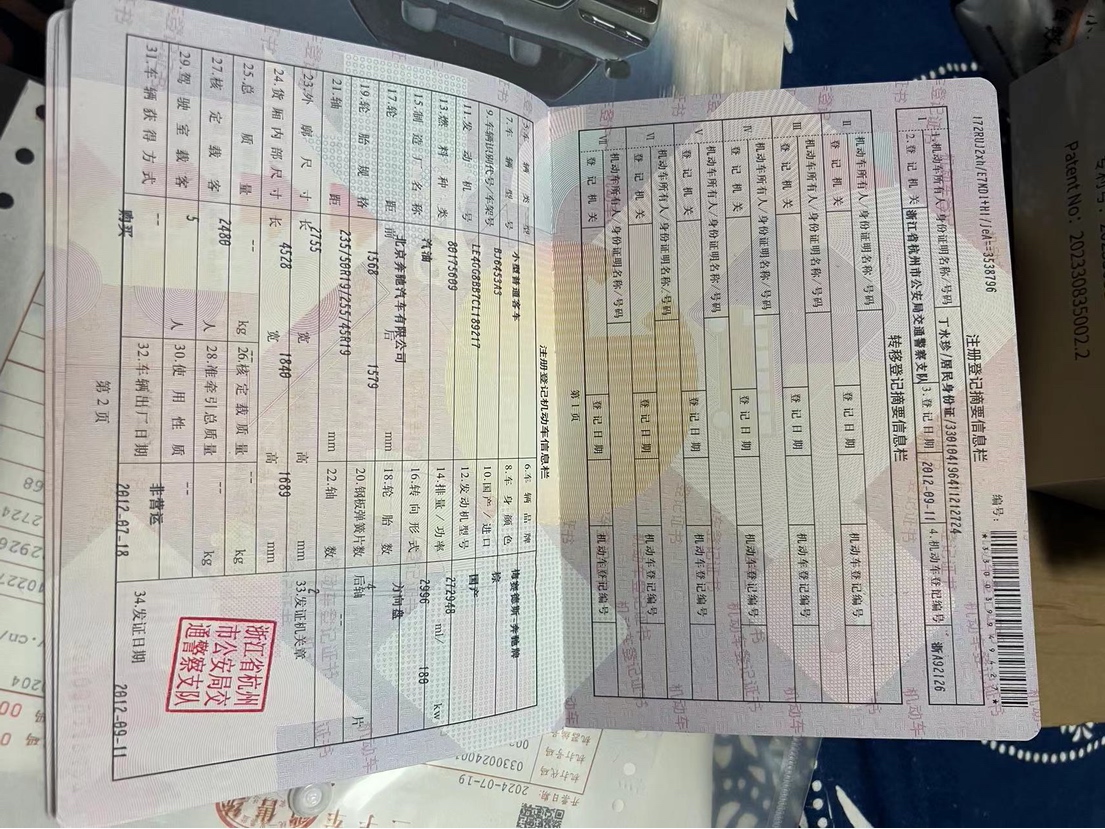 172RUJ2xh/E7MD1+H1/jeA==3538796
注册登记摘要信息栏
编号:
Ⅰ
1.机动车所有人/身份证明名称/号码 丁水珍/居民身份证/330104196411212724
2.登记机关 浙江省杭州市公安局交通警察支队 3.登记日期 2012-09-11 4.机动车登记编号 浙A92126
转移登记摘要信息栏
Ⅱ
机动车所有人/身份证明名称/号码
登记机关 登记日期 机动车登记编号
Ⅲ
机动车所有人/身份证明名称/号码
登记机关 登记日期 机动车登记编号
Ⅳ
机动车所有人/身份证明名称/号码
登记机关 登记日期 机动车登记编号
Ⅴ
机动车所有人/身份证明名称/号码
登记机关 登记日期 机动车登记编号
Ⅵ
机动车所有人/身份证明名称/号码
登记机关 登记日期 机动车登记编号
Ⅶ
机动车所有人/身份证明名称/号码
登记机关 登记日期 机动车登记编号
第1页
注册登记机动车信息栏
5.车辆类型 小型普通客车 6.车辆品牌 梅赛德斯-奔驰牌
7.车辆型号 BJ6453A3 8.车身颜色 棕
9.车辆识别代号/车架号 LE4GG8BB7CL189217 10.国产/进口 国产
11.发动机号 80175609 12.发动机型号 272948
13.燃料种类 汽油 14.排量/功率 2996 ml/ 180 kw
15.制造厂名称 北京奔驰汽车有限公司 16.转向形式 方向盘
17.轮距 前 1568 后 1579 mm 18.轮胎数 4
19.轮胎规格 235/50R19/255/45R19 20.钢板弹簧片数 后轴 -- 片
21.轴距 2755 mm 22.轴数 2
23.外廓尺寸 长 4528 宽 1840 高 1689 mm
33.发证机关章
24.货厢内部尺寸 长 -- 宽 -- 高 -- mm
25.总质量 2480 kg 26.核定载质量 -- kg
27.核定载客 5 人 28.准牵引总质量 -- kg
29.驾驶室载客 -- 人 30.使用性质 非营运
31.车辆获得方式 购买 32.车辆出厂日期 2012-07-18
34.发证日期 2012-09-11
浙江省杭州
市公安局交
通警察支队
第2页
Patent No: 202330835002.2
开票日期 2024-07-19
机打代码
机打号码